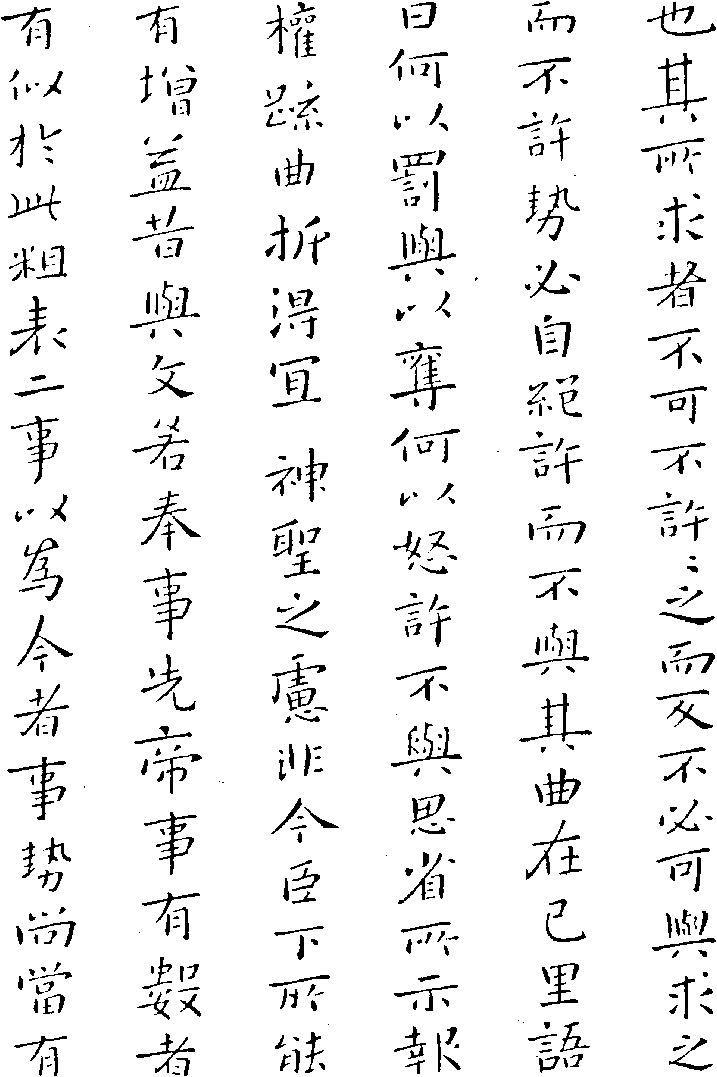 也其所求者不可不許〻之而反不必可與求之
而不許勢必自絕許而不與其曲在己里語
曰何以罰與以奪何以怒許不與思省所示報
權疏曲折得宜神聖之慮非今臣下所能
有增益昔與文若奉事先帝事有數者
有似於此粗表二事以為今者事勢尚當有